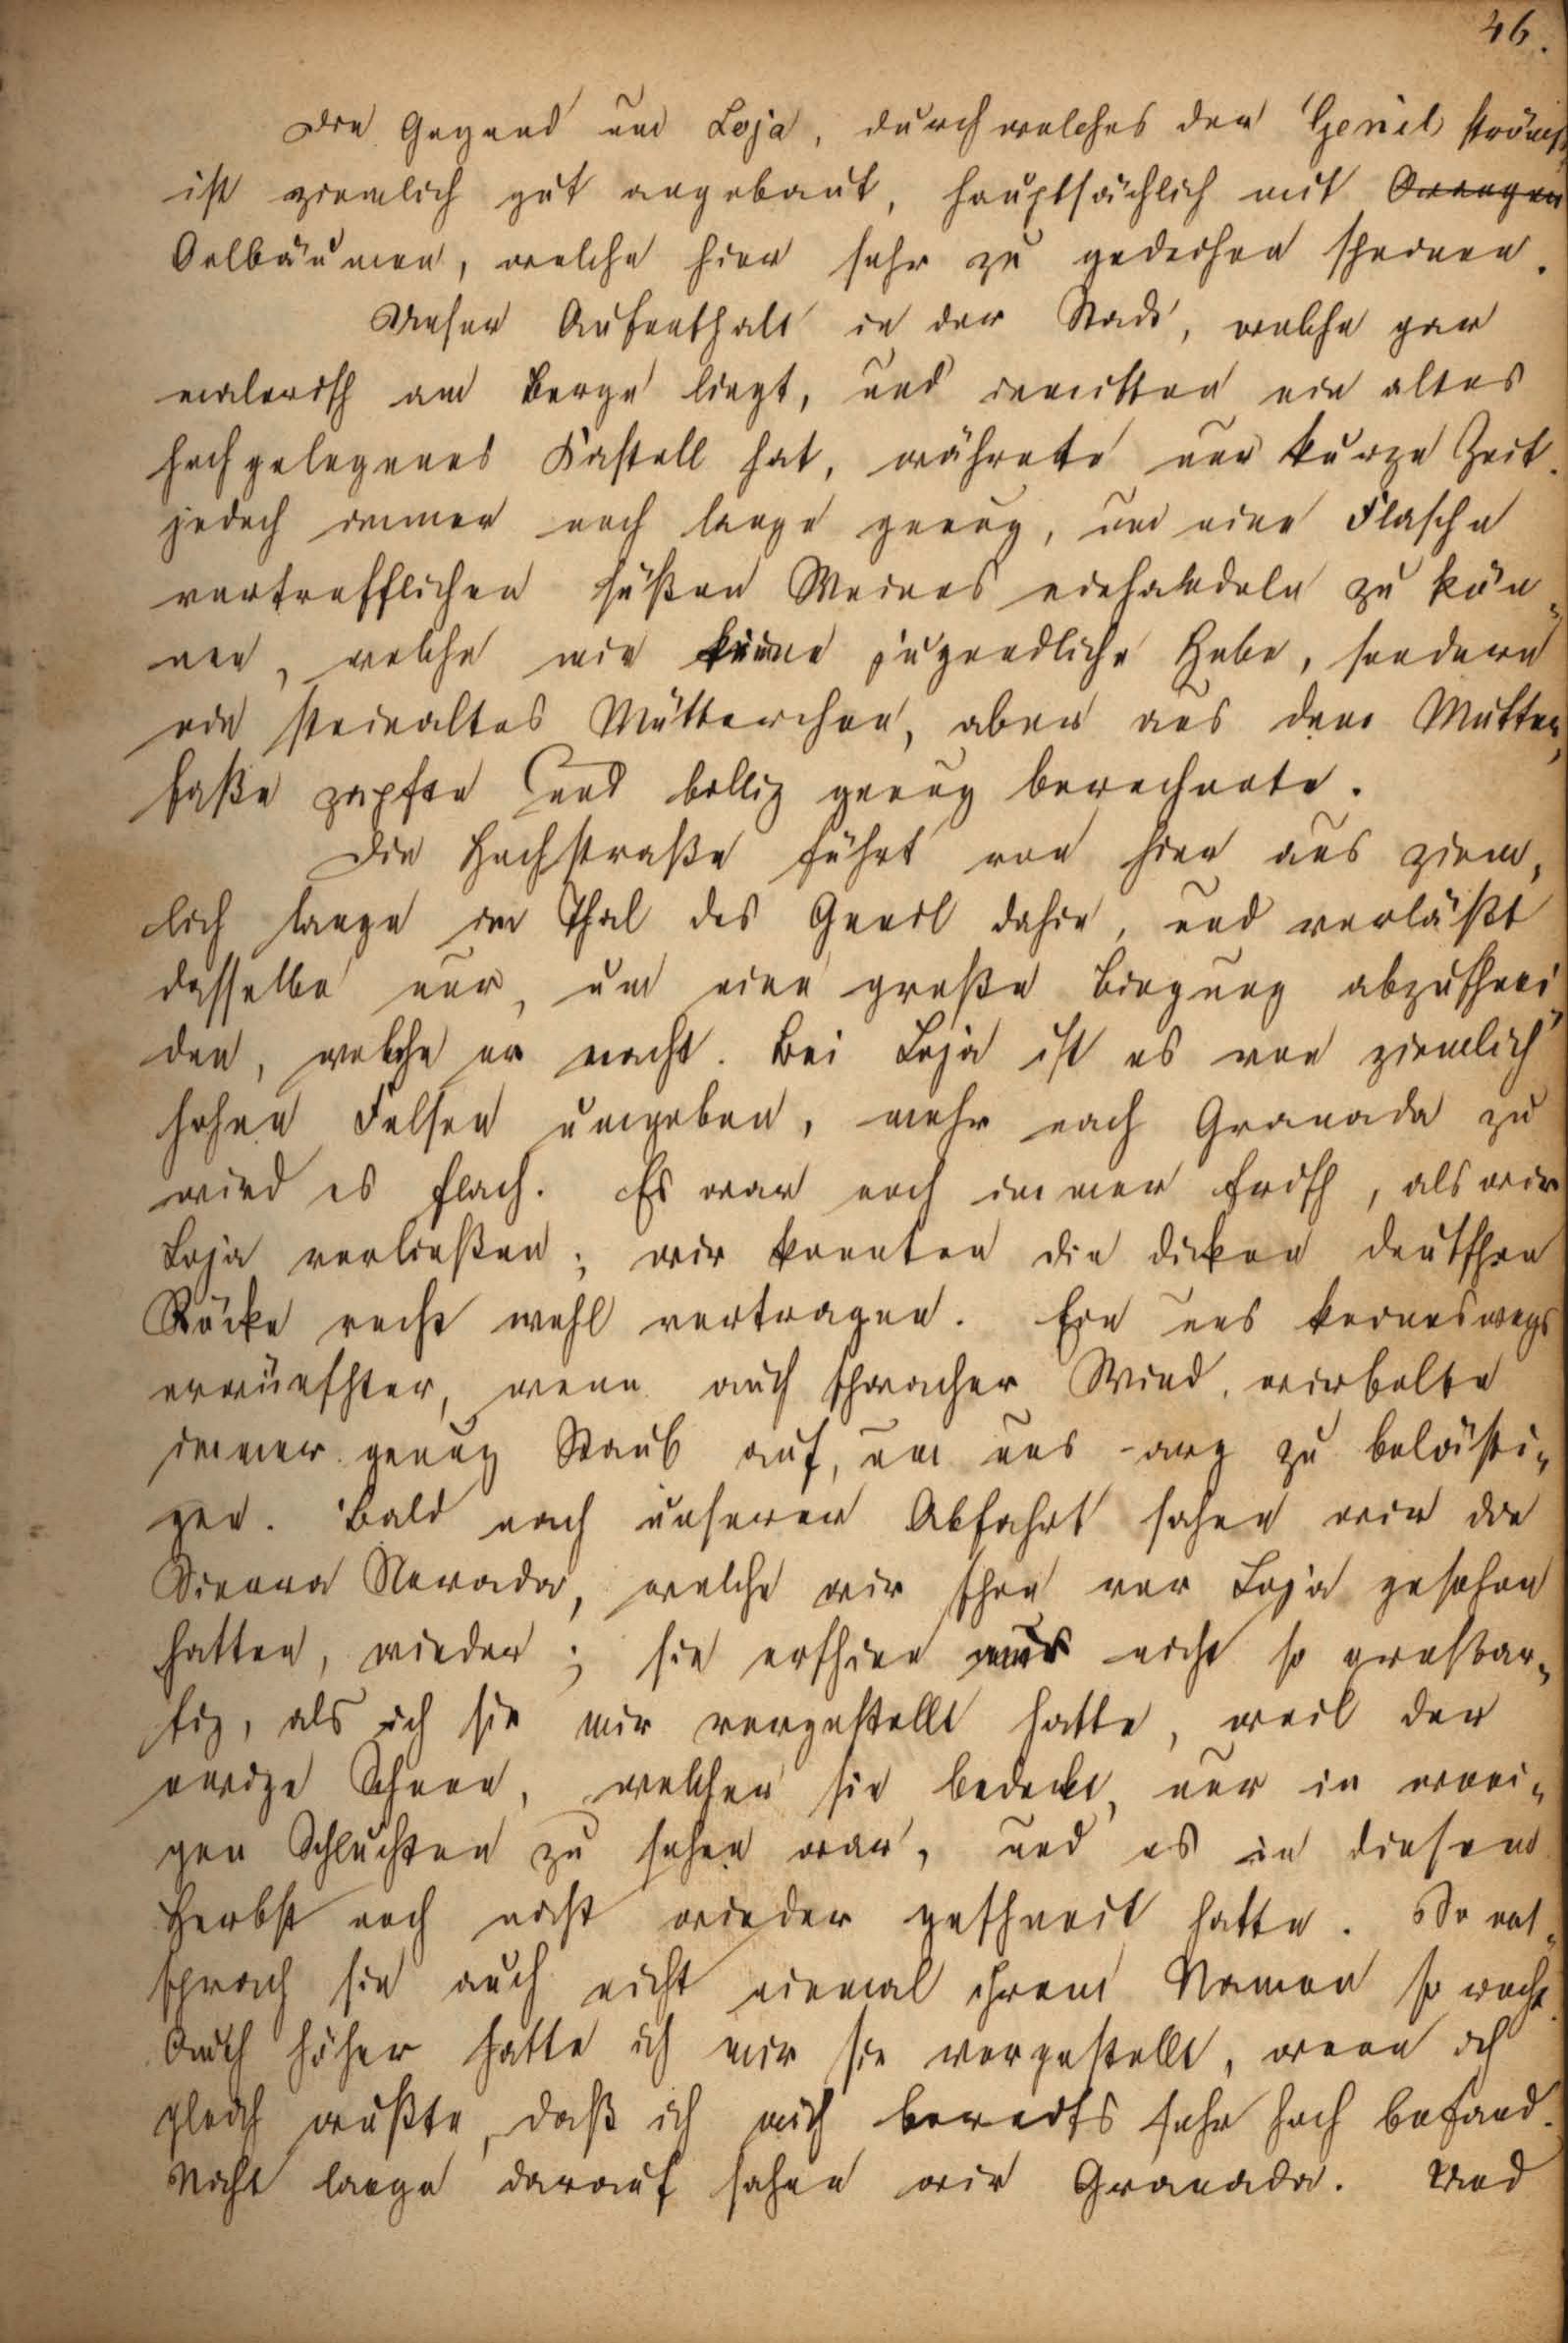 46.
Die Gegend um Loja, durch welches der Genil strömt,
ist ziemlich gut angebaut, hauptsächlich mit Orangen
Oelbäumen, welche hier sehr zu gedeihen scheinen.
Unser Aufenthalt in der Stadt, welche gar
malerisch am Berge liegt, und inmitten ein altes
hochgelegenes Kastell hat, währete nur kurze Zeit,
jedoch immer noch lange genug, um eine Flasche
vortrefflichen süßen Weines einhandeln zu kön„
nen, welche mir keine jugendliche Hebe, sondern
ein steinaltes Mütterchen, aber aus dem Mutter„
faße zapfte und billig genug berechnete.
Die Hochstraße führt von hier aus ziem„
lich lange im Thal des Genil dahin, und verläßt
dasselbe nur, um eine große Biegung abzuschnei„
den, welche er macht. Bei Loja ist es von ziemlich
hohen Felsen umgeben, mehr nach Granada zu
wird es flach. Es war noch immer frisch, als wir
Loja verließen; wir konnten die dicken deutschen
Röcke recht wohl vertragen. Ein uns keineswegs
erwünschter, wenn auch schwacher Wind, wirbelte
immer genug Staub auf, um uns arg zu belästi„
gen. Bald nach unserer Abfahrt sahen wir die
Sierra Nevada, welche wir schon vor Loja gesehen
hatten, wieder; sie erschien mir nicht so großar„
tig, als ich sie mir vorgestellt hatte, weil der
ewige Schnee, welcher sie bedeckt, nur in weni„
gen Schluchten zu sehen war, und es in diesem
Herbst noch nicht wieder geschneit hatte. So ent„
sprach sie auch nicht einmal ihrem Namen so recht.
Auch höher hatte ich mir sie vorgestellt, wenn ich
gleich wußte, daß ich mich bereits sehr hoch befand.
Nicht lange darauf sahen wir Granada. Und